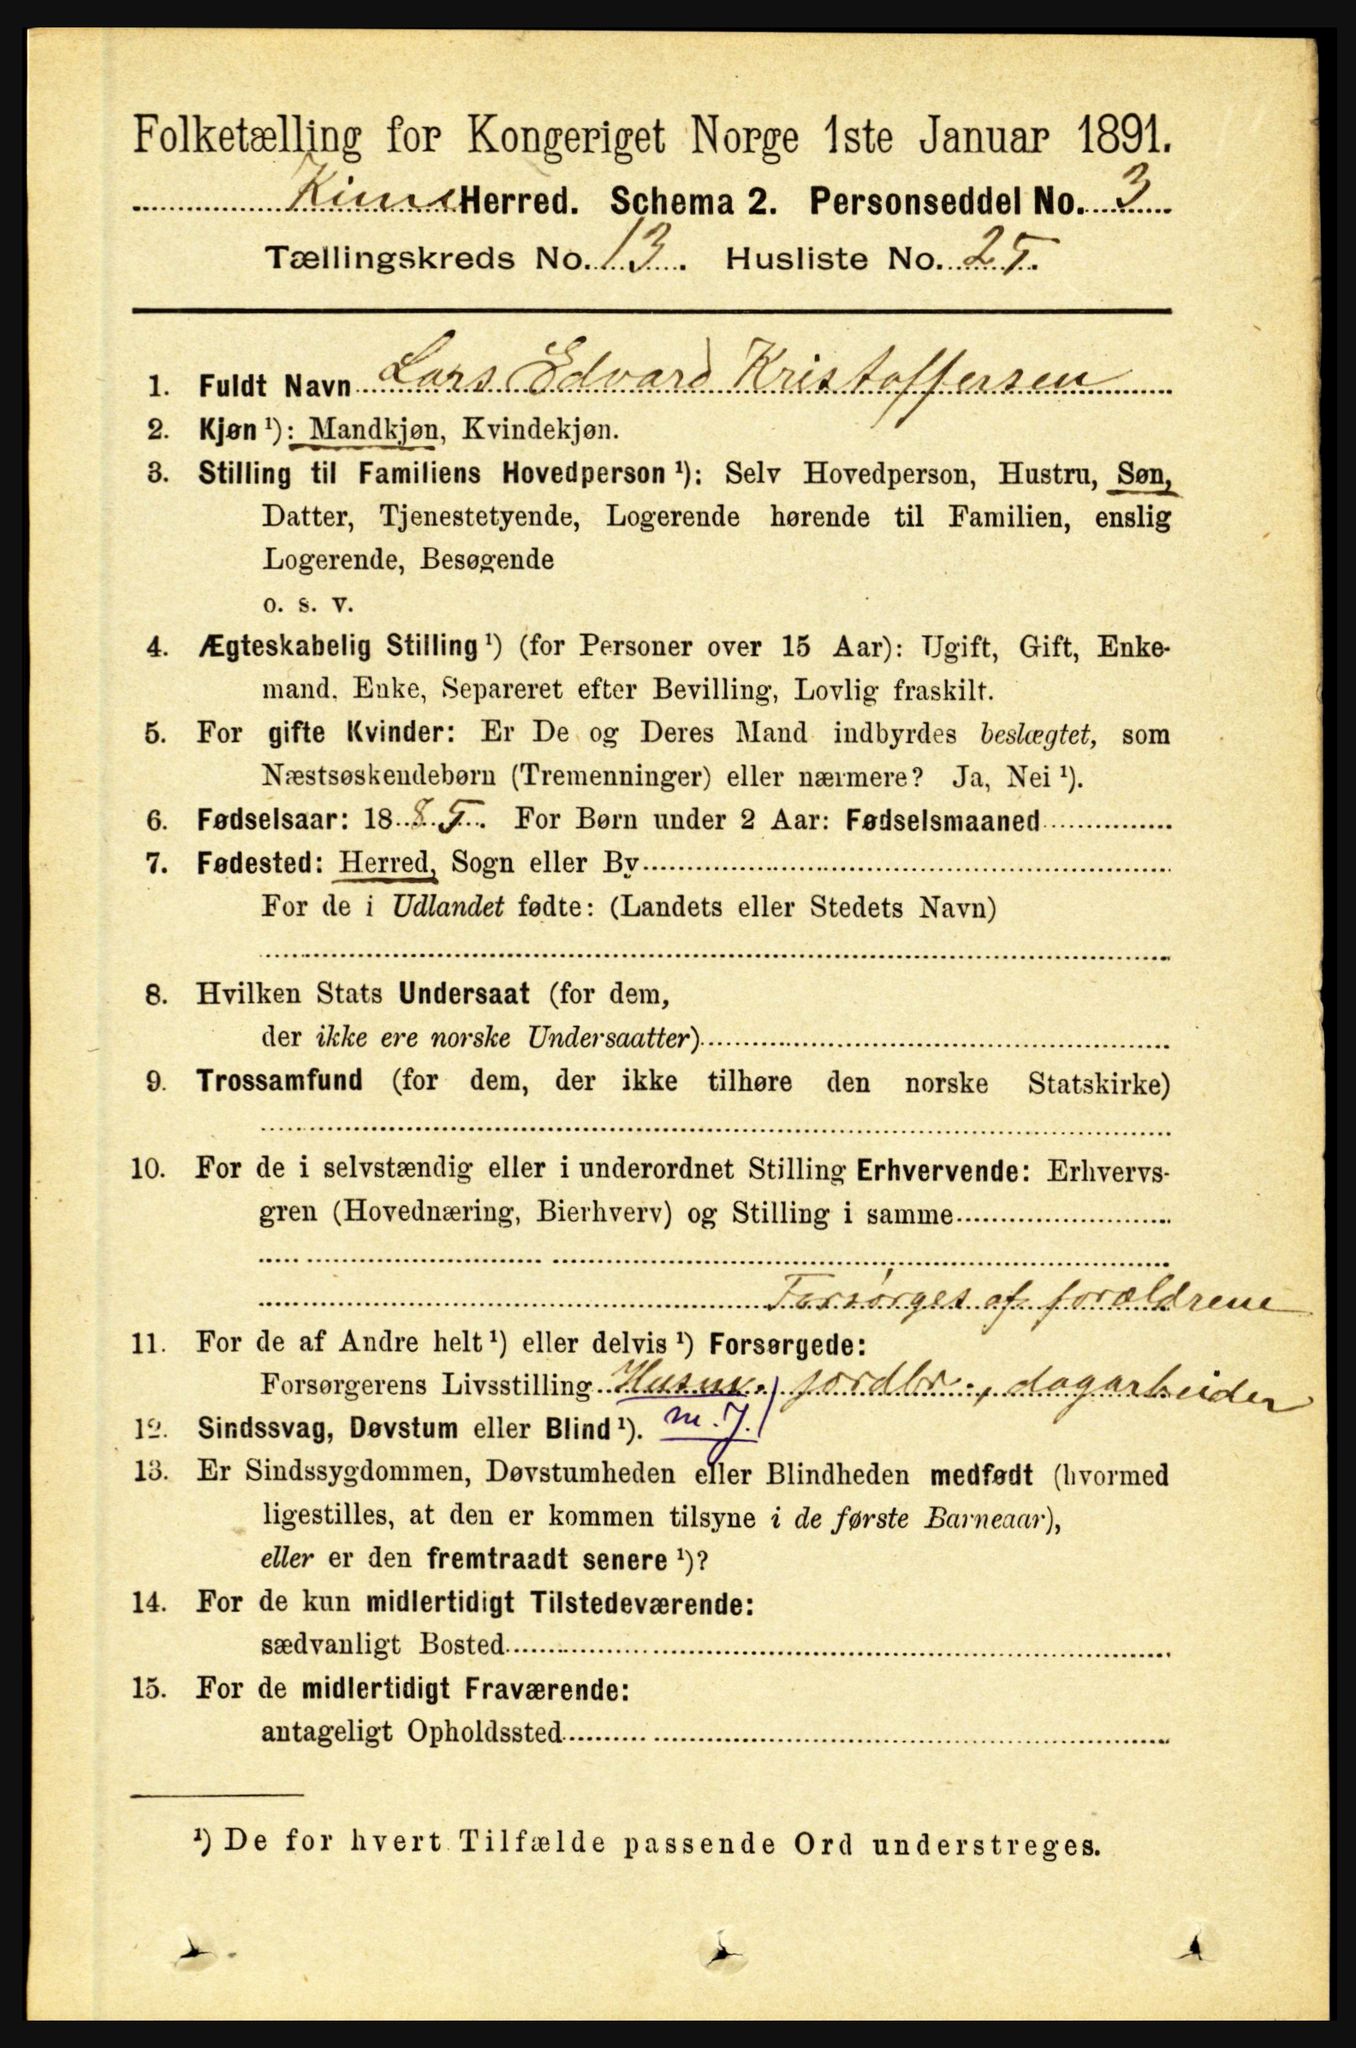 Folketælling for Kongeriget Norge 1ste Januar 1891.
Kinn Herred. Schema 2. Personseddel No. 3
Tællingskreds No. 13. Husliste No. 25.
1. Fuldt Navn Lars Edvard Kristoffersen
2. Kjøn ¹): Mandkjøn, Kvindekjøn.
3. Stilling til Familiens Hovedperson ¹): Selv Hovedperson, Hustru, Søn,
Datter, Tjenestetyende, Logerende hørende til Familien, enslig
Logerende, Besøgende
o. s. v.
4. Ægteskabelig Stilling ¹) (for Personer over 15 Aar): Ugift, Gift, Enke-
mand, Enke, Separeret efter Bevilling, Lovlig fraskilt.
5. For gifte Kvinder: Er De og Deres Mand indbyrdes beslægtet, som
Næstsøskendebørn (Tremenninger) eller nærmere? Ja, Nei ¹).
6. Fødselsaar: 1885. For Børn under 2 Aar: Fødselsmaaned
7. Fødested: Herred, Sogn eller By
For de i Udlandet fødte: (Landets eller Stedets Navn)
8. Hvilken Stats Undersaat (for dem,
der ikke ere norske Undersaatter)
9. Trossamfund (for dem, der ikke tilhøre den norske Statskirke)
10. For de i selvstændig eller i underordnet Stilling Erhvervende: Erhvervs-
gren (Hovednæring, Bierhverv) og Stilling i samme
Forsørges af forældrene
11. For de af Andre helt ¹) eller delvis ¹) Forsørgede:
Forsørgerens Livsstilling Husm. jordbr., dagarbeider
m. J.
12. Sindssvag, Døvstum eller Blind ¹).
13. Er Sindssygdommen, Døvstumheden eller Blindheden medfødt (hvormed
ligestilles, at den er kommen tilsyne i de første Barneaar),
eller er den fremtraadt senere ¹)?
14. For de kun midlertidigt Tilstedeværende:
sædvanligt Bosted
15. For de midlertidigt Fraværende:
antageligt Opholdssted
¹) De for hvert Tilfælde passende Ord understreges.